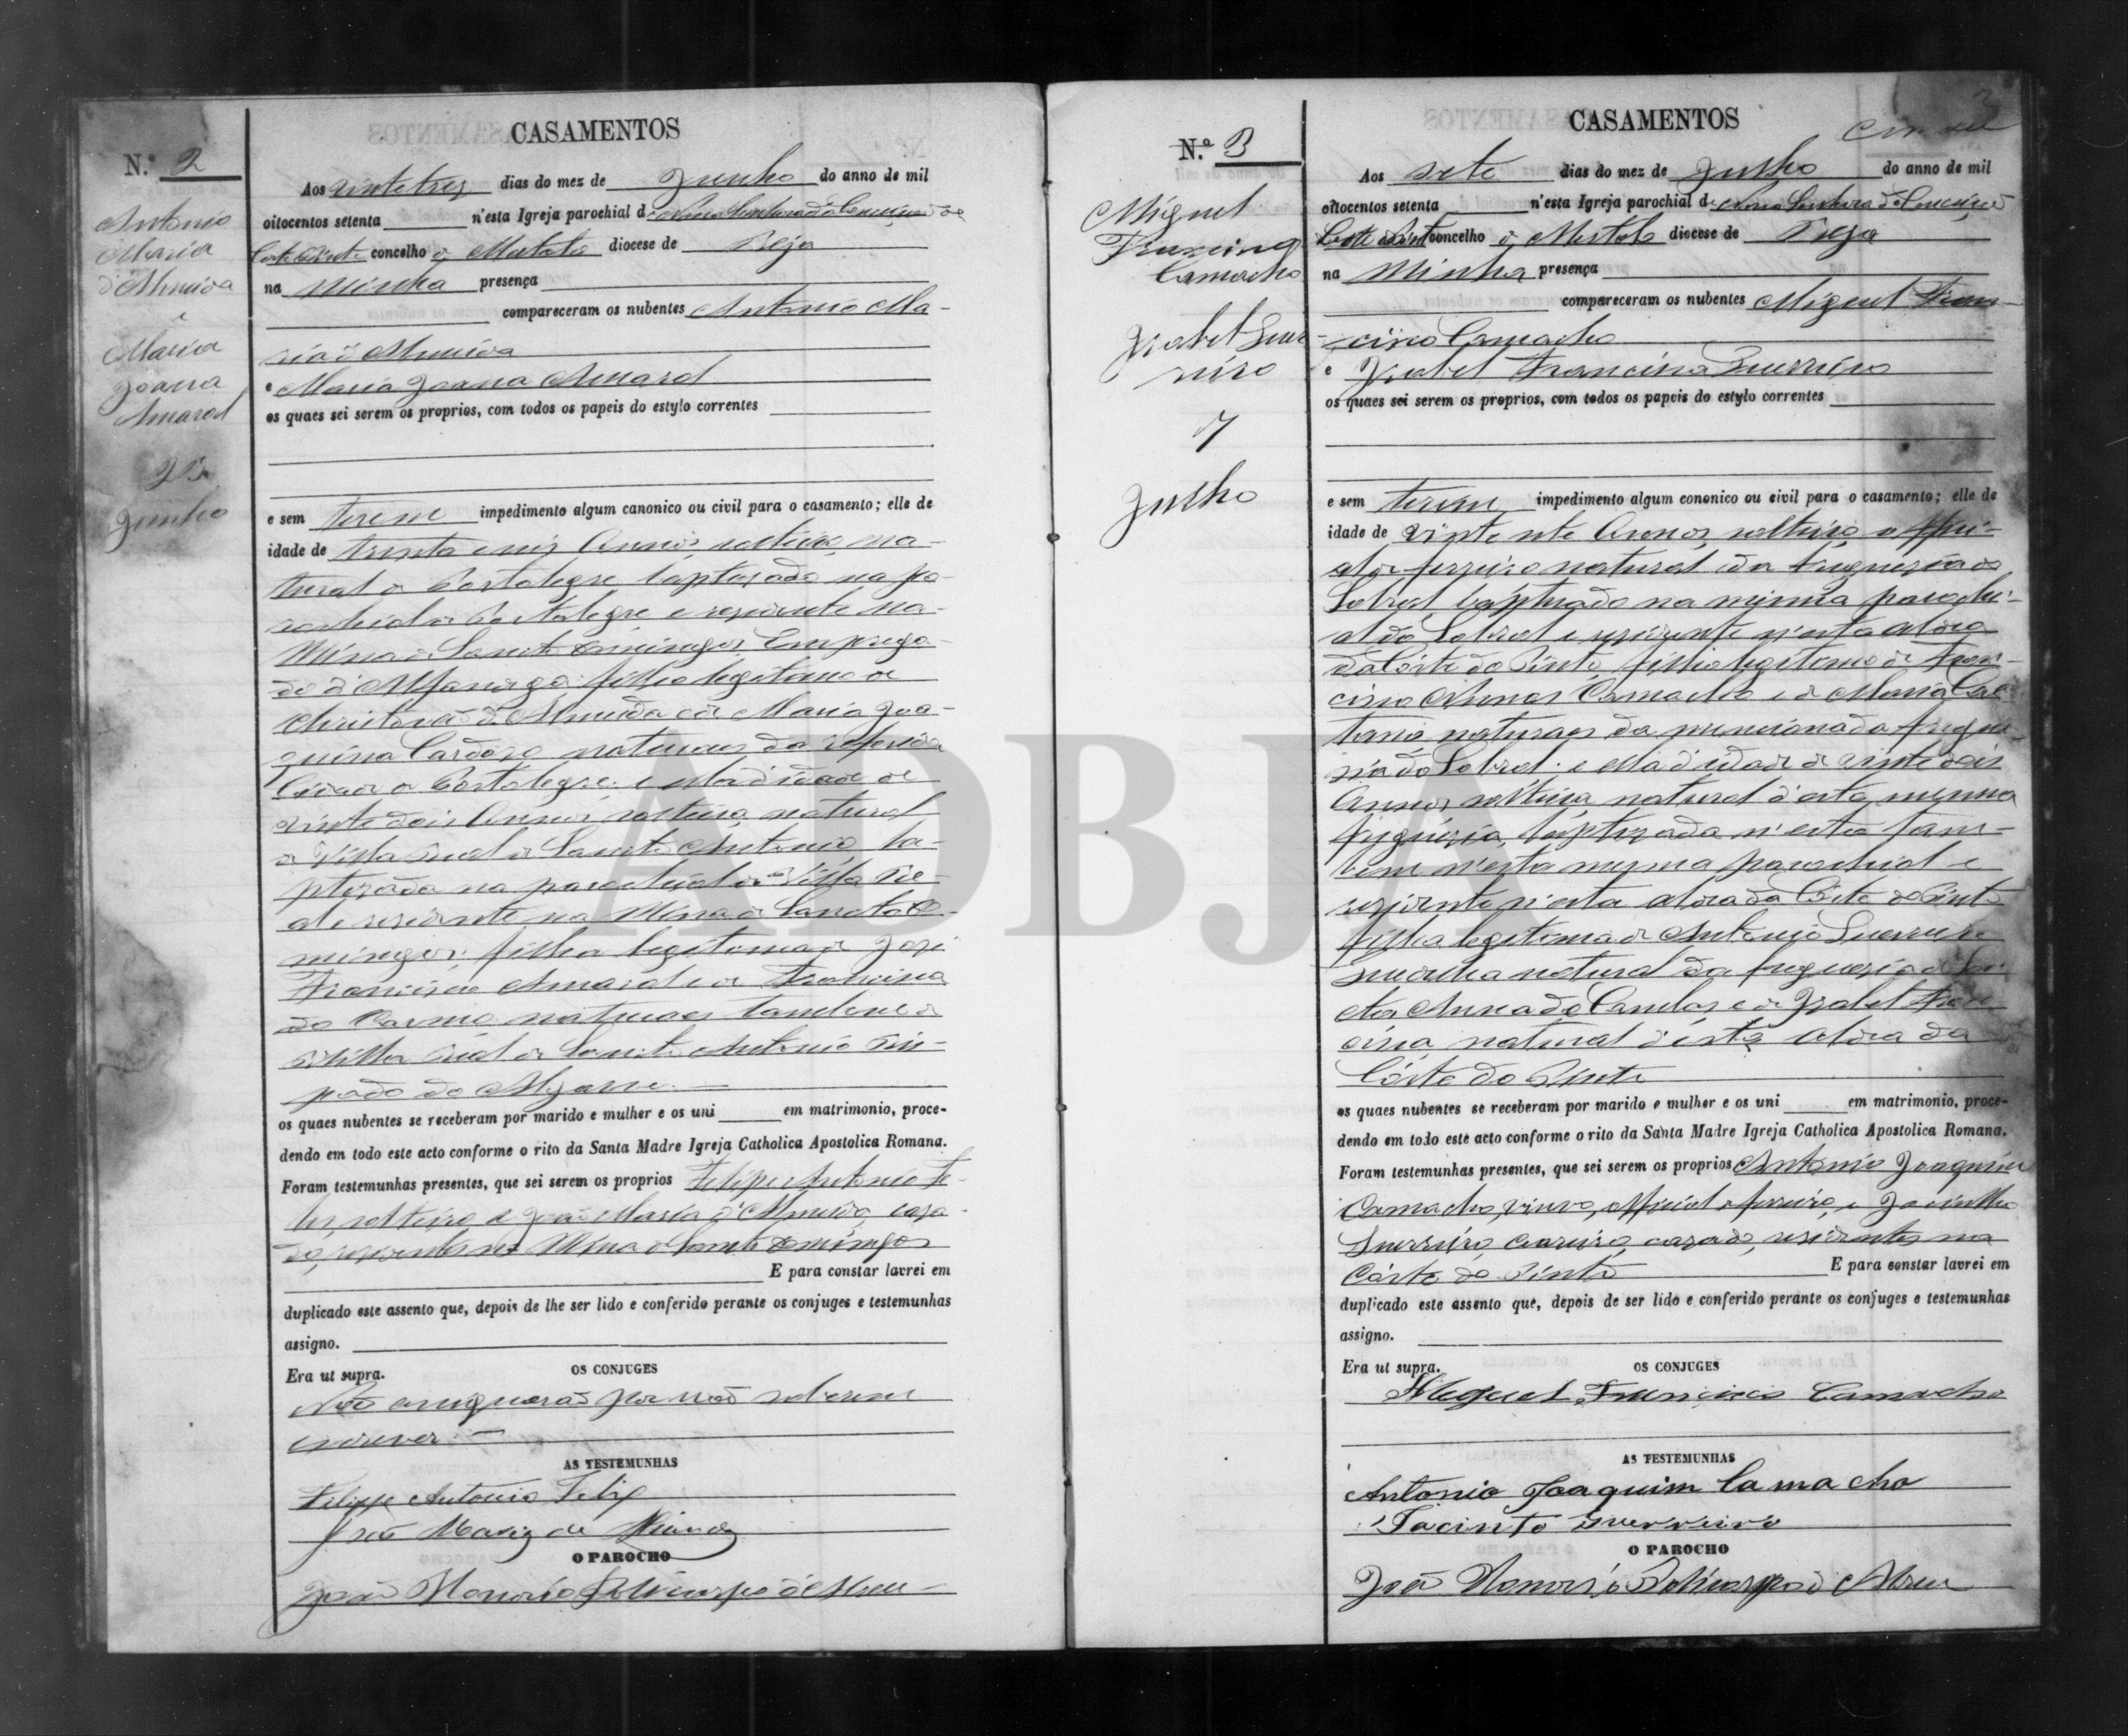 CASAMENTOS
N.º 2
Antonio
Maria
d'Almeida
e
Maria
Joana
Amaral
23
Junho
Aos vinte tres dias do mez de Junho do anno de mil
oitocentos setenta n'esta Igreja parochial de Nossa Senhora da Conceição de
Corte Pinto concelho de Mertola diocese de Beja
na minha presença
compareceram os nubentes Antonio Ma-
ria d'Almeida
e Maria Joana Amaral
os quaes sei serem os proprios, com todos os papeis do estylo correntes
e sem terem impedimento algum canonico ou civil para o casamento; elle de
idade de trinta e seis Annos, solteiro, na-
tural de Portalegre baptizado na pa-
rochial de Portalegre e residente na
Mina de Sancto Domingos, Emprega-
do d'Alfandega filho legitimo de
Christovão d'Almeida e de Maria Joa-
quina Cardozo naturaes da referida
Cidade de Portalegre: e ella d'idade de
vinte dois Annos solteira, natural
de Villa Real de Sancto Antonio, ba-
ptizada na parochial de Villa Re-
al e residente na Mina de Sancto Do-
mingos: filha legitima de José
Francisco Amaral e de Francisca
do Carmo naturaes tambem de
Villa Real de Sancto Antonio Bis-
pado do Algarve.
os quaes nubentes se receberam por marido e mulher e os uni em matrimonio, proce-
dendo em todo este acto conforme o rito da Santa Madre Igreja Catholica Apostolica Romana.
Foram testemunhas presentes, que sei serem os proprios Felipe Antonio Fe-
lis, solteiro, e João Maria d'Almeida, casa-
do, residentes na Mina de Sancto Domingos
E para constar lavrei em
duplicado este assento que, depois de lhe ser lido e conferido perante os conjuges e testemunhas
assigno.
Era ut supra.
OS CONJUGES
Não assignarão por não saberem
escrever.
AS TESTEMUNHAS
Filippe Antonio Felix
João Maria de
O PAROCHO
João Honorio Policarpo d'Abreu
CASAMENTOS
N.º 3
Miguel
Francisco
Camacho
Izabel Guer-
reiro
7
Julho
Aos sete dias do mez de Julho do anno de mil
oitocentos setenta n'esta Igreja parochial de Nossa Senhora da Conceição
Corte do Pinto concelho de Mertola diocese de Beja
na Minha presença
compareceram os nubentes Miguel Fran-
cisco Camacho
e Izabel Francisca Guerreiro
os quaes sei serem os proprios, com todos os papeis do estylo correntes
e sem terem impedimento algum cononico ou civil para o casamento; elle de
idade de vinte sete Annos, solteiro, offici-
al de ferreiro natural da freguezia do
Sobral, baptizado na mesma parochi-
al do Sobral e residente n'esta aldea
da Côrte do Pinto, filho legitimo de Fran-
cisco Nunes Camacho e de Maria Cae-
tana, naturaes da mencionada fregue-
zia do Sobral: e ella d'idade de vinte dois
Annos, solteira, natural d'esta mesma
freguezia, baptizada n'esta tam-
bem n'esta mesma parochial e
residente n'esta aldea da Côrte do Pinto
filha legitima de Antonio Guerreiro
natural da freguezia de San-
cta Anna de Cambas e de Izabel Fran-
cisca natural d'esta aldea da
Côrte do Pinto
os quaes nubentes se receberam por marido e mulher e os uni em matrimonio, proce-
dendo em todo este acto conforme o rito da Santa Madre Igreja Catholica Apostolica Romana.
Foram testemunhas presentes, que sei serem os proprios Antonio Joaquim
Camacho, viuvo, official de ferreiro, e Jacintho
Guerreiro, casado, residentes na
Côrte do Pinto
E para constar lavrei em
duplicado este assento que, depois de ser lido e conferido perante os conjuges e testemunhas
assigno.
Era ut supra.
OS CONJUGES
Miguel Francisco Camacho
AS TESTEMUNHAS
Antonio Joaquim Camacho
Jacinto Guerreiro
O PAROCHO
João Honorio Policarpo d'Abreu
ADBJA